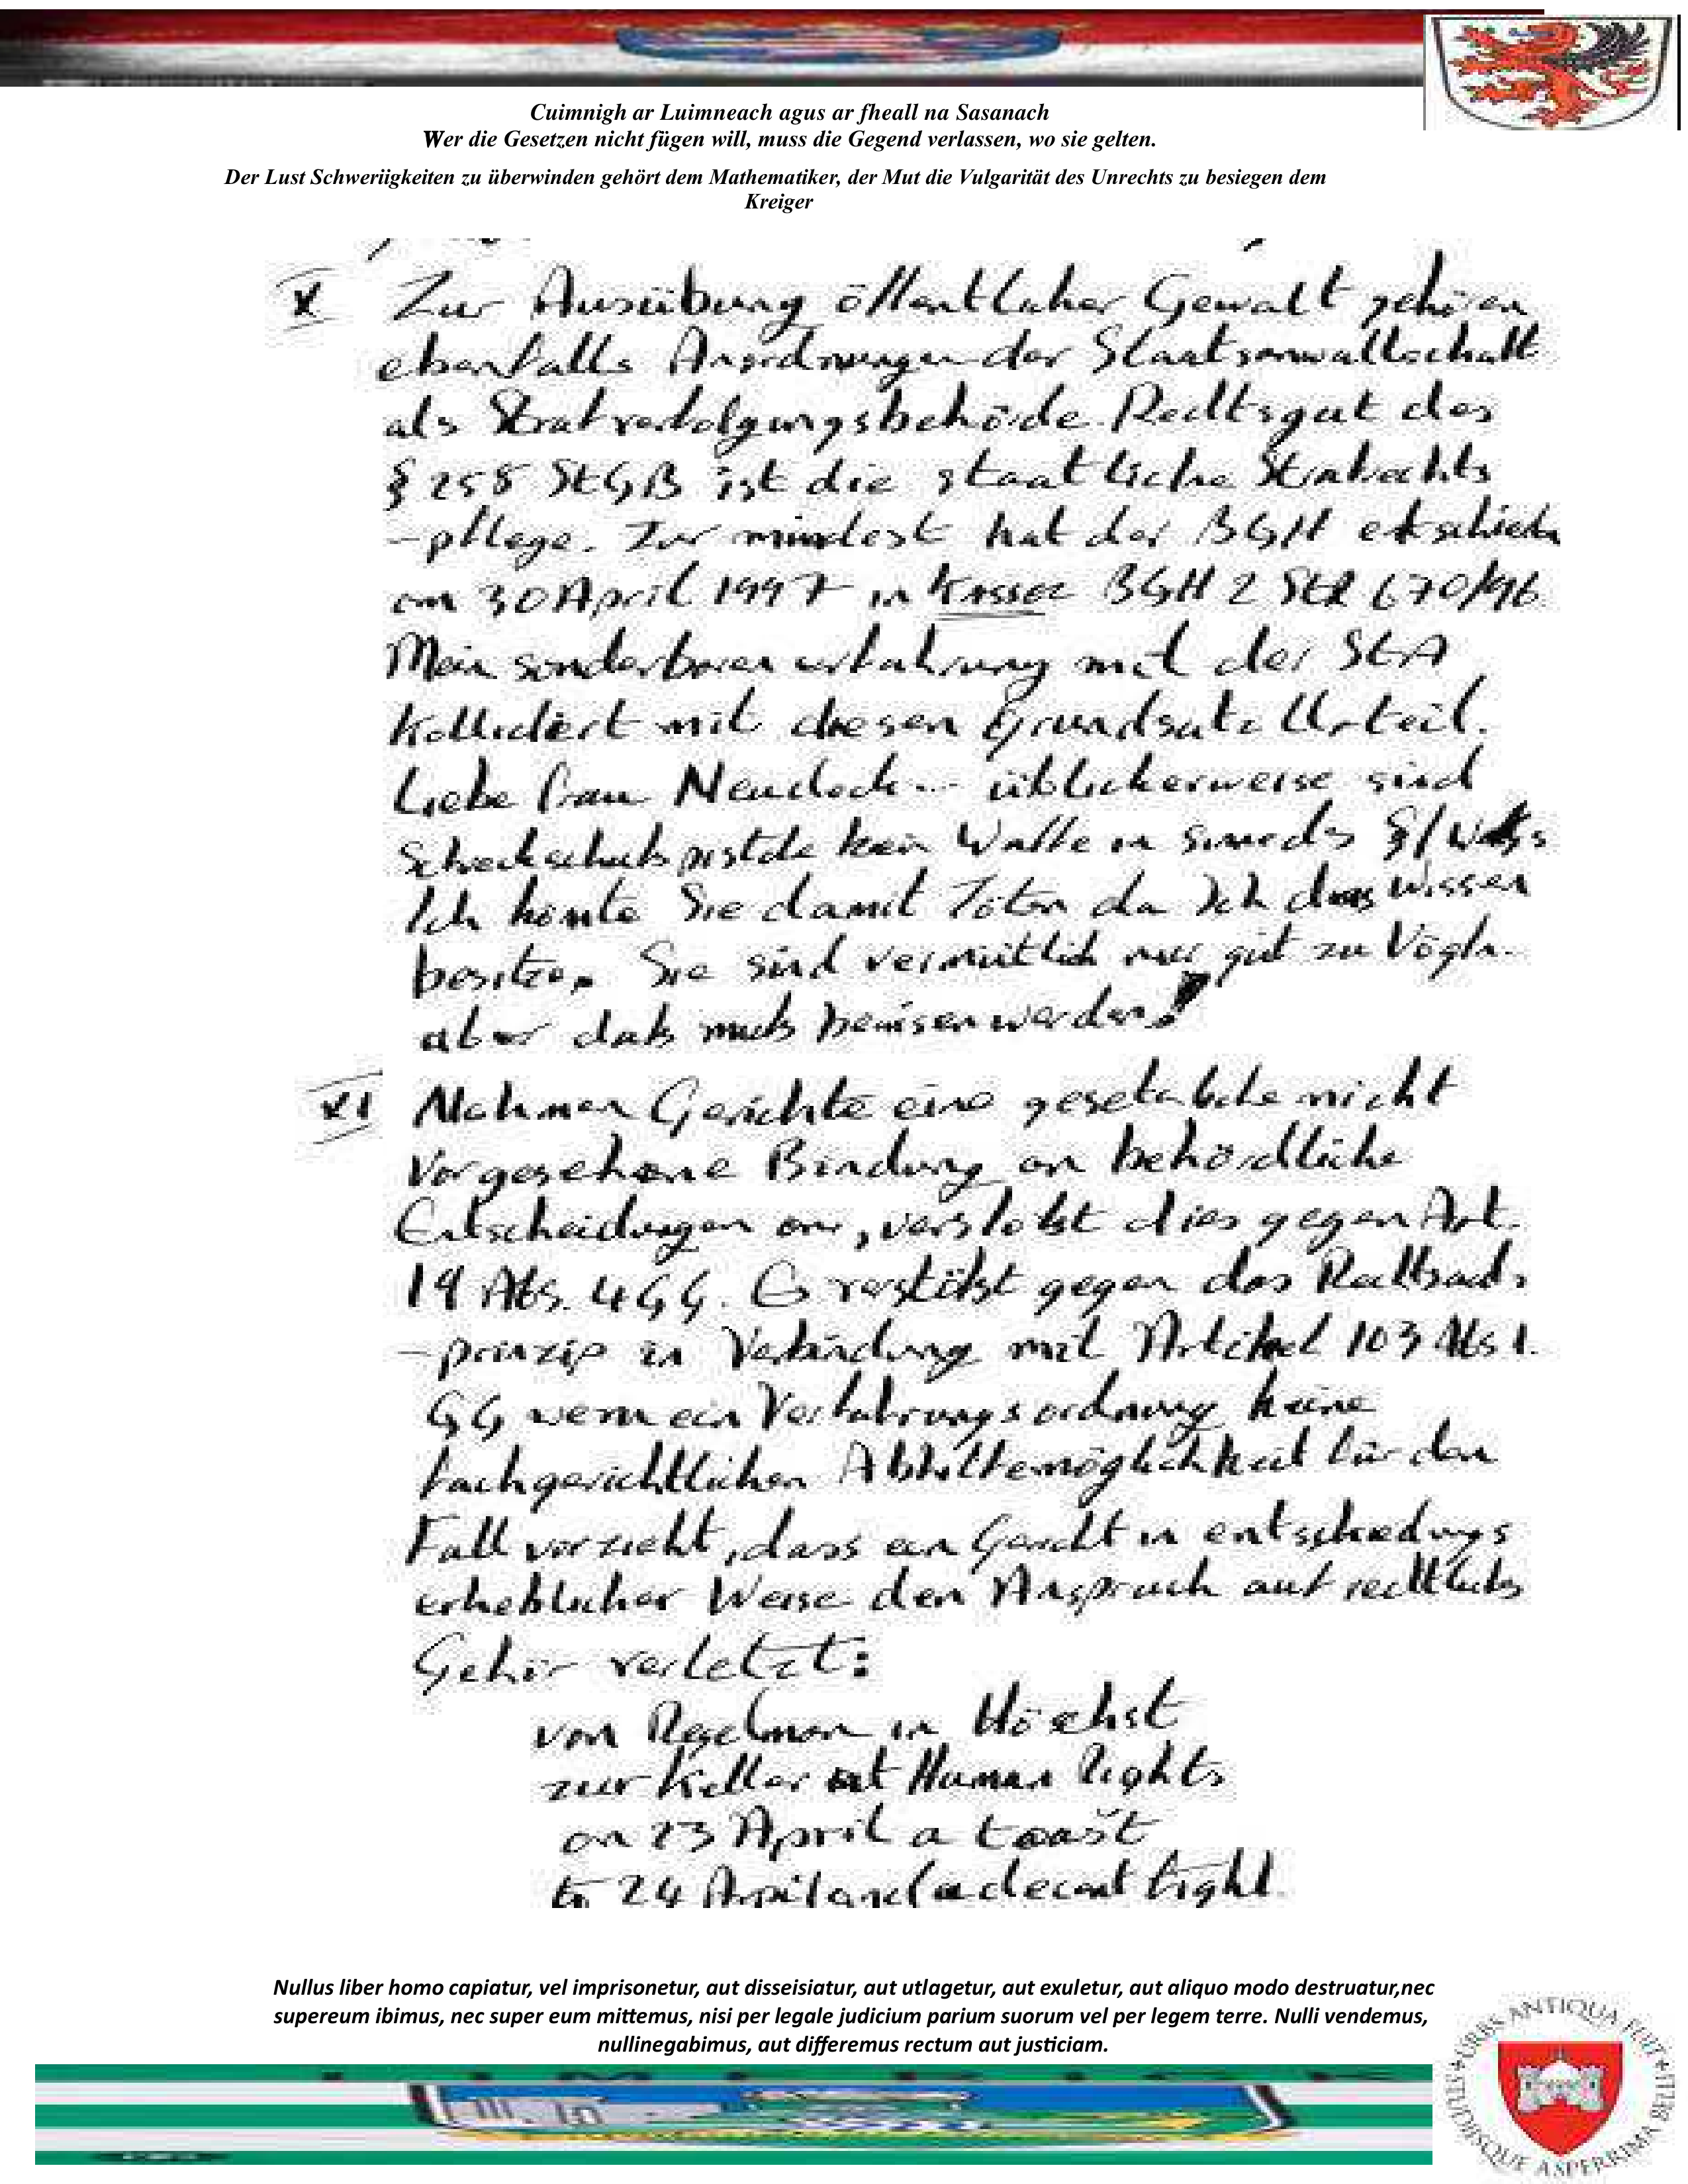 Cuimnigh ar Luimneach agus ar fheall na Sasanach
Wer die Gesetzen nicht fügen will, muss die Gegend verlassen, wo sie gelten.
Der Lust Schweriigkeiten zu überwinden gehört dem Mathematiker, der Mut die Vulgarität des Unrechts zu besiegen dem
Kreiger
X Zur Ausübung öffentlicher Gewalt gehören
ebenfalls Anordnungen der Staatsanwaltschaft
als Strafverfolgungsbehörde Rechtsgut des
§ 258 StGB ist die staatliche Strafrechts
-pflege. Zur mindest hat der BGH entschieden
am 30 April 1997 in BGH 2 StR 670/96
Mein sonderbaren erfahrung mit der StA
Kollidiert mit diesen Grundsatz Urteil.
Liebe Frau üblickerweise sind
Schreckschuß pistole kein Waffe in sinne ds §1
Ich könnte Sie damit Töten da Ich das wissen
besitze. Sie sind vermütlich nur gut zu Vögln.
aber daß muß beweisen werden!
XI Nehmen Gerichte eine gesetzliche nicht
vorgesehene Bindung an behördliche
Entscheidungen an, verstoßt dies gegen Art.
19 Abs. 4 GG. Es verstößt gegen das
-prinzip in Verbindung mit Artikel 103 Abs 1.
GG wenn ein Verfahrungsordnung keine
fachgerichtlichen Abhilfemöglichkeit für den
Fall vorzieht, dass ein Gericht in entscheidungs
erheblicher Weise den Anspruch auf rechtliches
Gehör verletzt:
von in Höchst
zur Keller Human Rights
on 23 April a toast
to 24 April and a decent fight.
Nullus liber homo capiatur, vel imprisonetur, aut disseisiatur, aut utlagetur, aut exuletur, aut aliquo modo destruatur,nec
supereum ibimus, nec super eum mittemus, nisi per legale judicium parium suorum vel per legem terre. Nulli vendemus,
nullinegabimus, aut differemus rectum aut justiciam.
URBS ANTIQUA FUIT STUDIISQUE ASPERRIMA BELLI